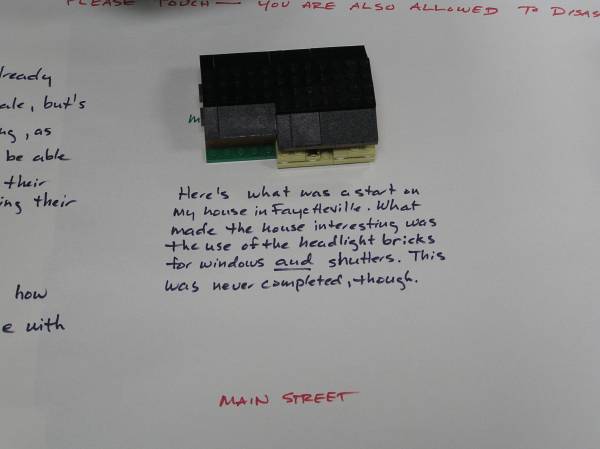 PLEASE TOUCH — YOU ARE ALSO ALLOWED TO DISAS
already
ale, but's
ng, as
be able
their
ing their
how
e with
m
Here's what was a start on
my house in Fayetteville. What
made the house interesting was
the use of the headlight bricks
for windows and shutters. This
was never completed, though.
MAIN STREET